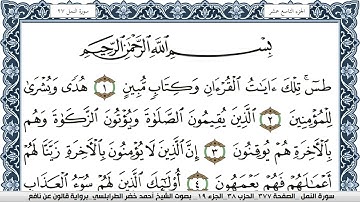 الجزء التاسع عشر
سورة النمل ٢٧
بِسْمِ ٱللَّهِ ٱلرَّحْمَٰنِ ٱلرَّحِيمِ
طسٓ ۚ تِلْكَ ءَايَٰتُ ٱلْقُرْءَانِ وَكِتَابٍ مُّبِينٍ ١ هُدًى وَبُشْرَىٰ
لِلْمُؤْمِنِينَ ٢ ٱلَّذِينَ يُقِيمُونَ ٱلصَّلَوٰةَ وَيُؤْتُونَ ٱلزَّكَوٰةَ وَهُم
بِٱلْأَخِرَةِ هُمْ يُوقِنُونَ ٣ إِنَّ ٱلَّذِينَ لَا يُؤْمِنُونَ بِٱلْأَخِرَةِ زَيَّنَّا لَهُمْ
أَعْمَٰلَهُمْ فَهُمْ يَعْمَهُونَ ٤ أُوْلَٰٓئِكَ ٱلَّذِينَ لَهُمْ سُوٓءُ ٱلْعَذَابِ
سورة النمل الصفحة ٣٧٧ الحزب ٣٨ الجزء ١٩ بصوت الشيخ أحمد خضر الطرابلسي برواية قالون عن نافع